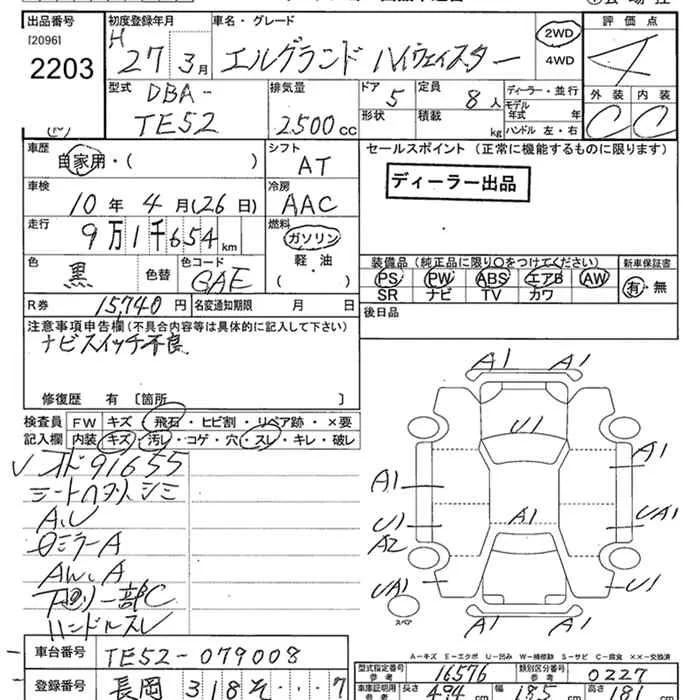 出品番号
[2096]
2203
初度登録年月
H 27年 3月
車名・グレード
エルグランド ハイウェイスター
2WD
4WD
評価点
外装 内装
C C
型式
DBA-
TE52
排気量
2500 cc
ドア 5
形状
定員 8人
積載 kg
ディーラー・並行
モデル年式 年
ハンドル 左・右
車歴
自家用・( )
シフト
AT
セールスポイント (正常に機能するものに限ります)
ディーラー出品
車検
10年 4月(26日)
冷房
AAC
走行
9万1千654km
燃料
ガソリン
軽・油
( )
色
黒
色替
色コード
GAE
装備品(純正品に限り○をつけてください)
PS PW ABS エアB AW
SR ナビ TV カワ
新車保証書
有・無
R券 15,740円
名変通知期限 月 日
後日品
注意事項申告欄(不具合内容等は具体的に記入して下さい)
ナビスイッチ不良
修復歴 有 〔箇所 〕
検査員
記入欄
FW キズ・飛石・ヒビ割・リペア跡・×要
内装 キズ・汚レ・コゲ・穴・スレ・キレ・破レ
オド91655
シートヘタリ、シミ
A、U
ロミラーA
AW、A
下回り一部C
ハンドルスレ
A1 A1
U1
A1
A1
U1
A1
UA1
A2
UA1
U1
A1 A1
スペア
A-キズ E-エクボ U-凹み W-補修跡 S-サビ C-腐食 ××-交換済
車台番号
TE52-079008
登録番号
長岡 318 そ ・・・7
型式指定番号
参考
16576
類別区分番号
参考
0227
車庫証明用
参考
長さ 494 cm
幅 185 cm
高さ 181 cm